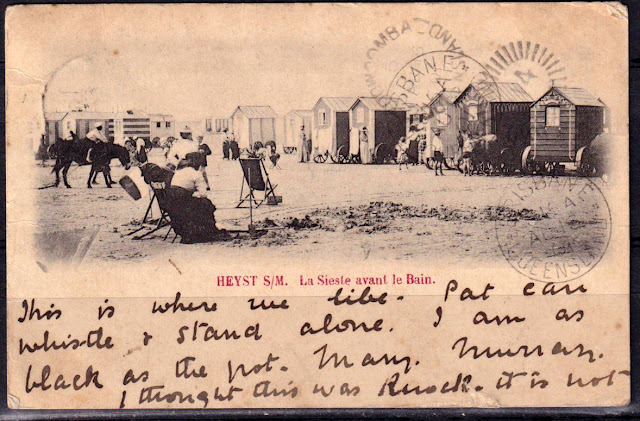 BOWOOMBA
QUEENSLAND
BRISBANE
BRISBANE
QUEENSL
HEYST S/M. La Sieste avant le Bain.
This is where we live. Pat can
whistle & stand alone. I am as
black as the pot. Mary. Murray.
I thought this was Knock. it is not